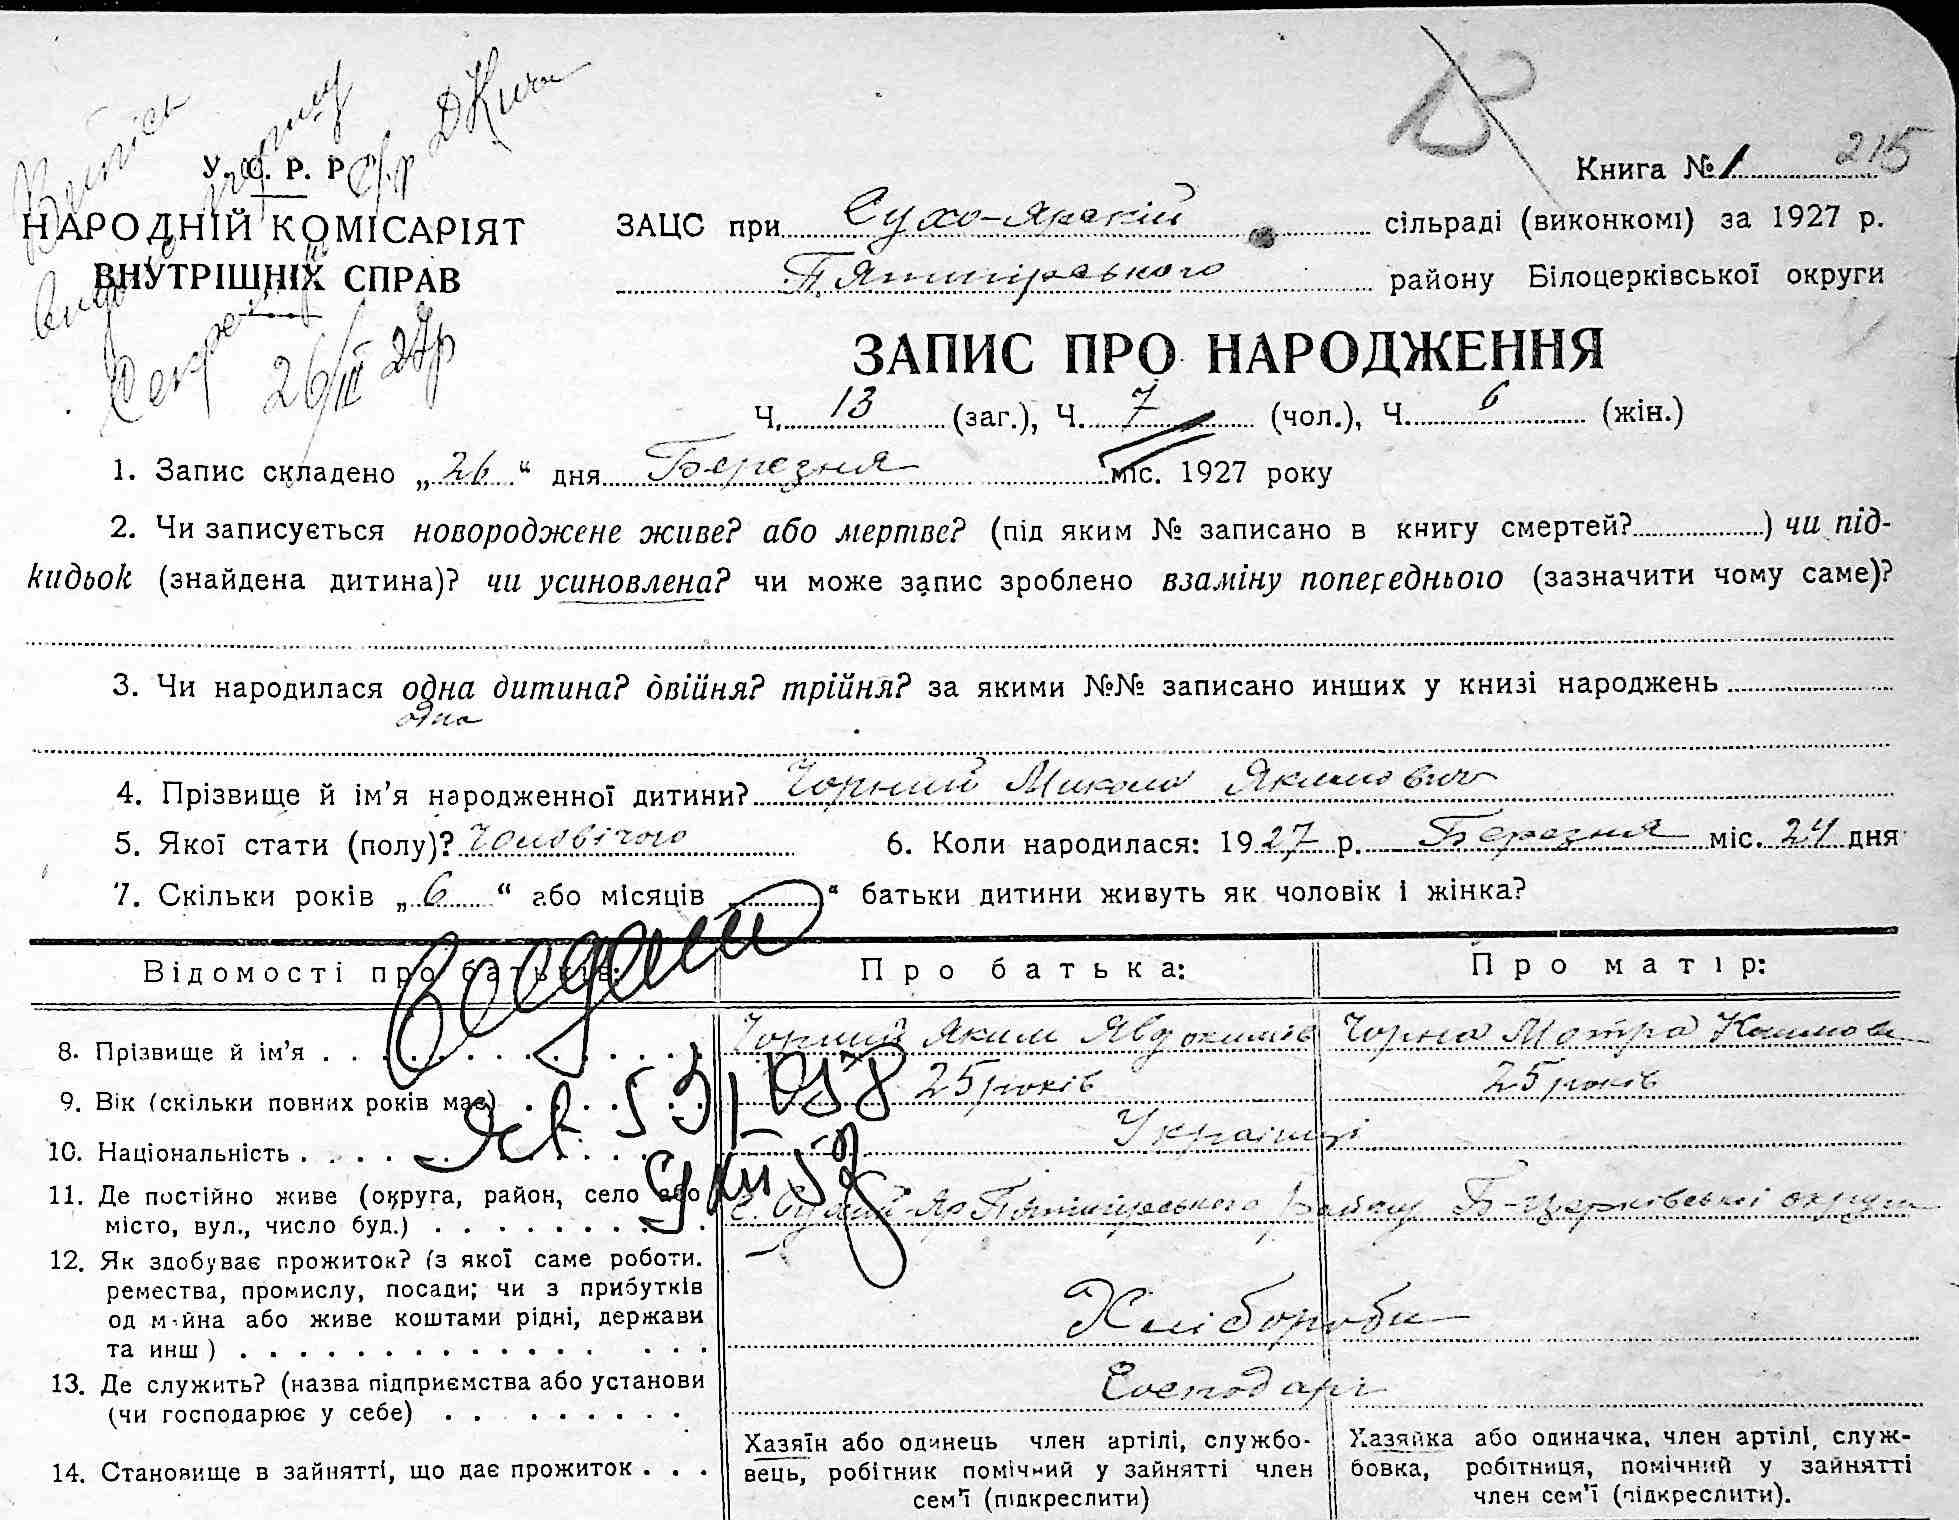 Випись
видано
Секре
26/III 27р
215
У. С. Р. Р.
НАРОДНІЙ КОМІСАРІЯТ
ВНУТРІШНІХ СПРАВ
Книга № 1
ЗАЦС при Сухо-Ярській сільраді (виконкомі) за 1927 р.
П'ятигірського району Білоцерківської округи
ЗАПИС ПРО НАРОДЖЕННЯ
Ч. 13 (заг.), Ч. 7 (чол.), Ч. 6 (жін.)
1. Запис складено „26“ дня Березня міс. 1927 року
2. Чи записується новороджене живе? або мертве? (під яким № записано в книгу смертей? ) чи під-
кидьок (знайдена дитина)? чи усиновлена? чи може запис зроблено взаміну попереднього (зазначити чому саме)?
3. Чи народилася одна дитина? двійня? трійня? за якими №№ записано инших у книзі народжень
одна
4. Прізвище й ім’я народженної дитини? Чорний Микола Якимович
5. Якої стати (полу)? Чоловічого 6. Коли народилася: 1927 р. Березня міс. 24 дня
7. Скільки років „6“ або місяців „ “ батьки дитини живуть як чоловік і жінка?
Відомості про батьків: Про батька: Про матір:
8. Прізвище й ім’я Чорний Яким Явдокимів Чорна Мотра
9. Вік (скільки повних років має) 25 років 25 років
10. Національність Українці
11. Де постійно живе (округа, район, село або
місто, вул., число буд.) с. Сухий-Яр П'ятигірського району Б-церківської округи
12. Як здобуває прожиток? (з якої саме роботи.
ремества, промислу, посади; чи з прибутків
од майна або живе коштами рідні, держави
та инш) Хлібороби
13. Де служить? (назва підприємства або установи
(чи господарює у себе) Господарі
14. Становище в зайнятті, що дає прожиток
Хазяїн або одинець член артілі, службо-
вець, робітник помічний у зайнятті член
сем’ї (підкреслити)
Хазяйка або одиначка, член артілі, служ-
бовка, робітниця, помічний у зайнятті
член сем’ї (підкреслити).